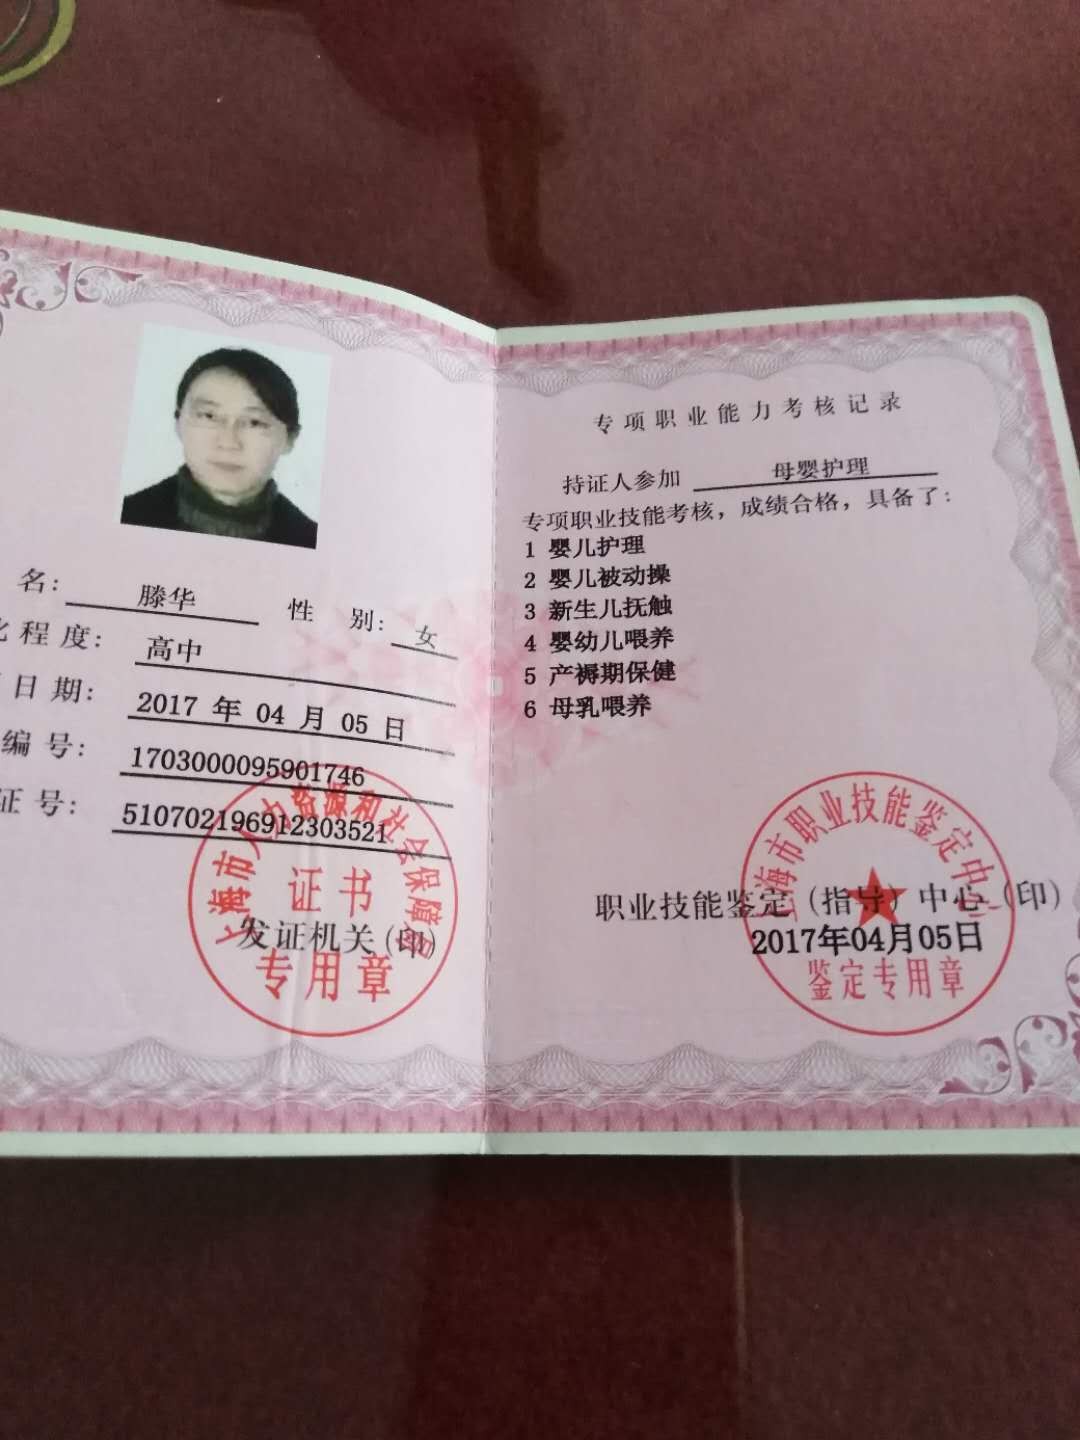 名：滕华 性 别：女
化程度：高中
日期：2017 年 04 月 05 日
编号：1703000095901746
证号：510702196912303521
上海市人力资源和社会保障局
证书
发证机关(印)
专用章
专项职业能力考核记录
持证人参加 母婴护理
专项职业技能考核，成绩合格，具备了：
1 婴儿护理
2 婴儿被动操
3 新生儿抚触
4 婴幼儿喂养
5 产褥期保健
6 母乳喂养
上海市职业技能鉴定中心
职业技能鉴定（指导）中心（印）
2017年04月05日
鉴定专用章